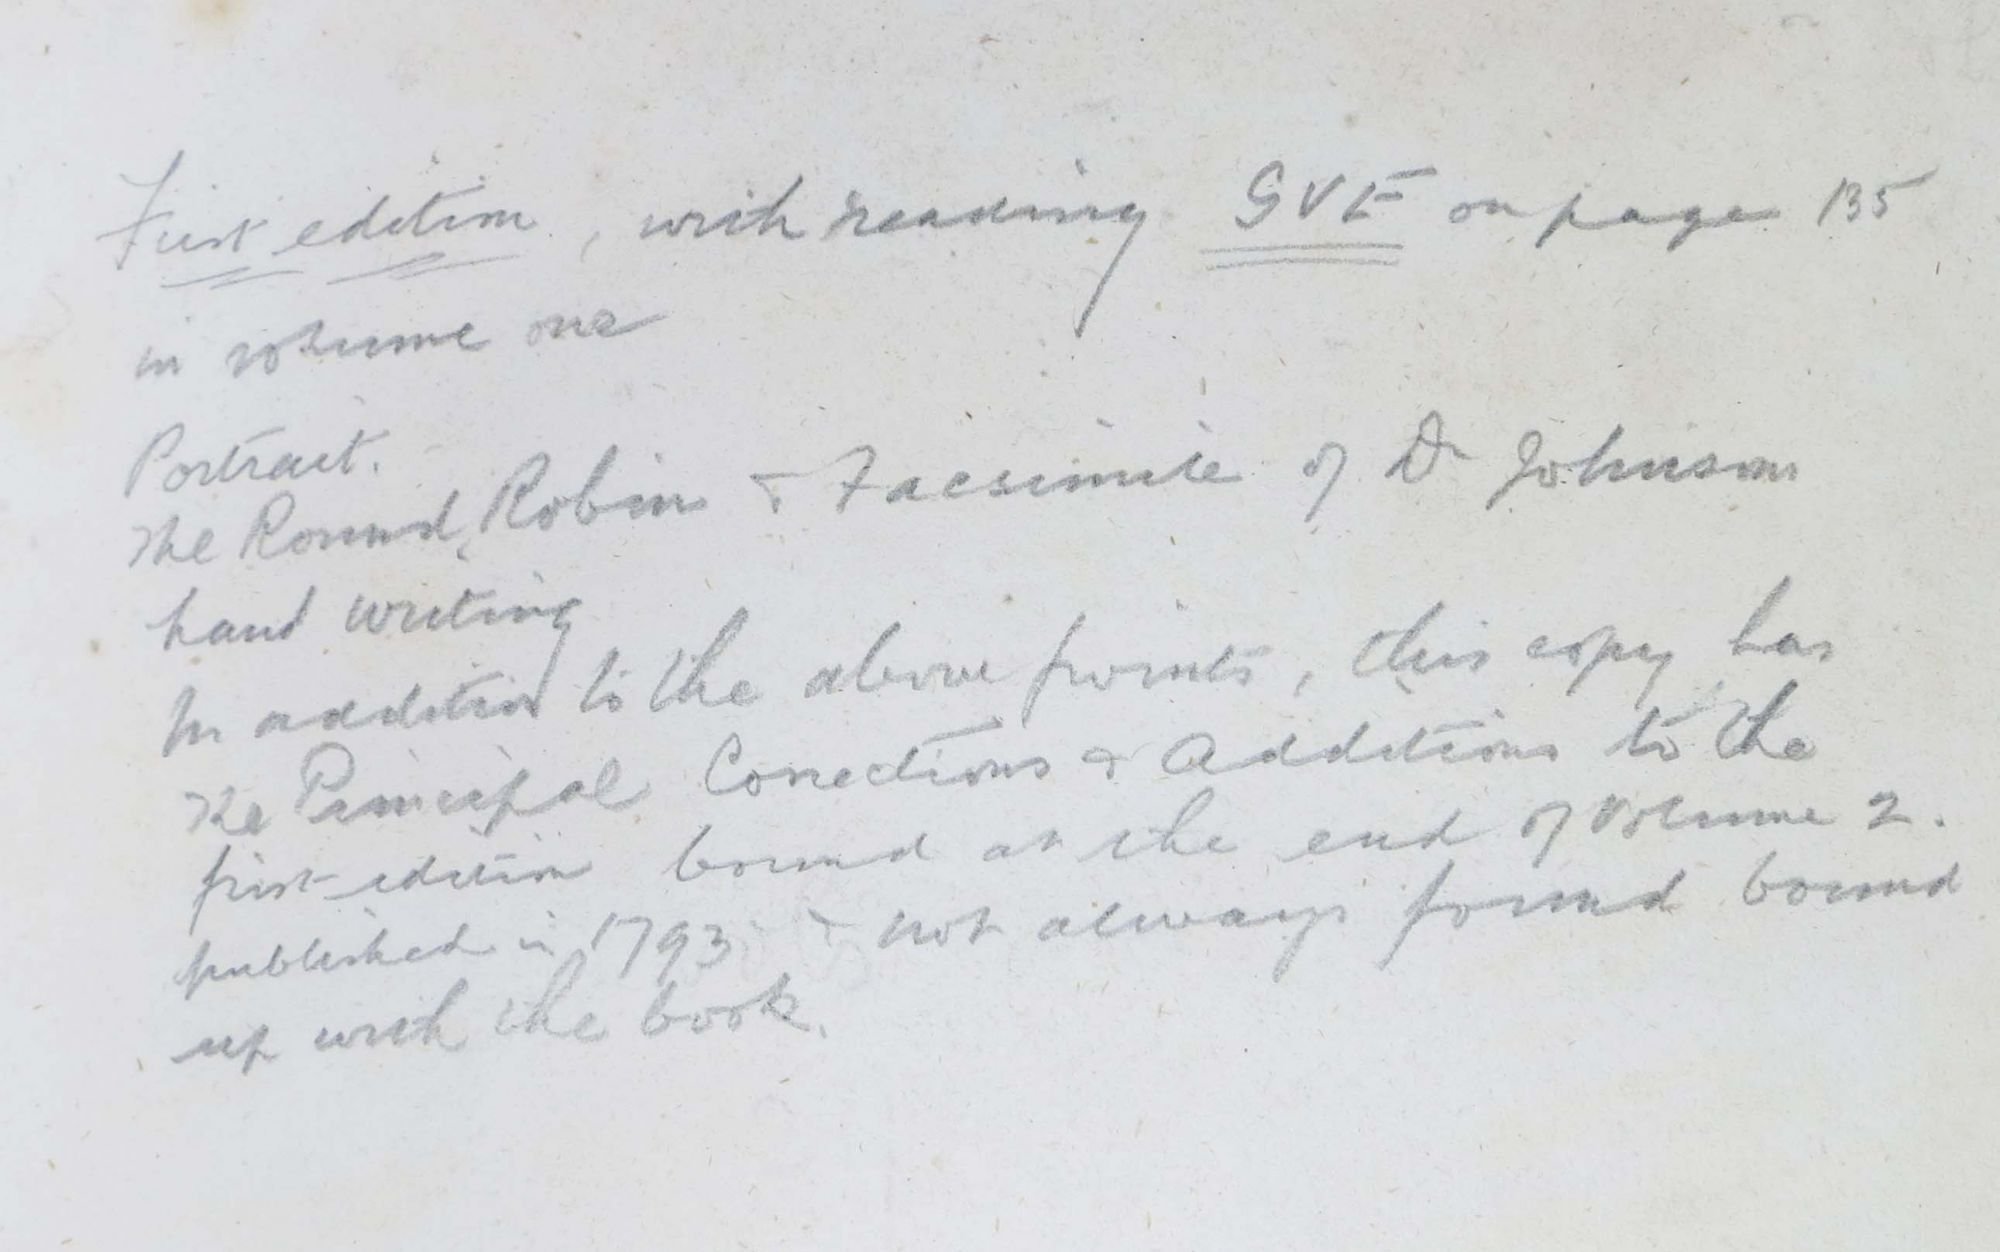 First edition, with reading GVE on page 135
in volume one
Portrait.
The Round, Robin & Facsimile of Dr Johnson
hand writing
In addition to the above points, this copy has
the Principal Corrections & Additions to the
first edition bound at the end of Volume 2.
published in 1793 & not always found bound
up with the book.